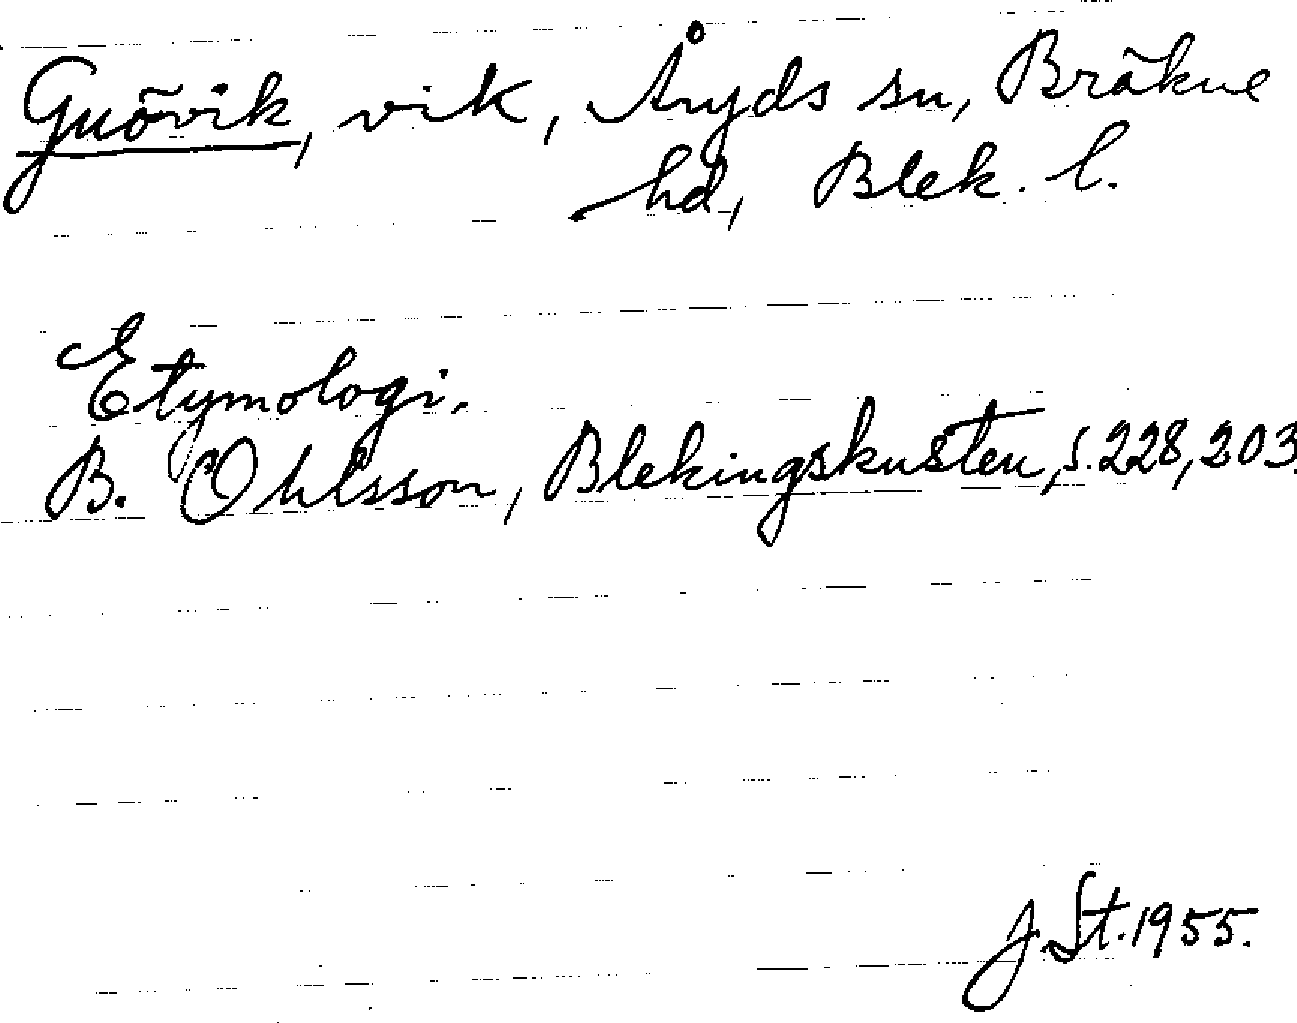 Gnövik, vik, Åryds sn, Bräkne
hd, Blek. l.
Etymologi.
B. Ohlsson, Blekingskusten, s. 228, 203.
J. St. 1955.